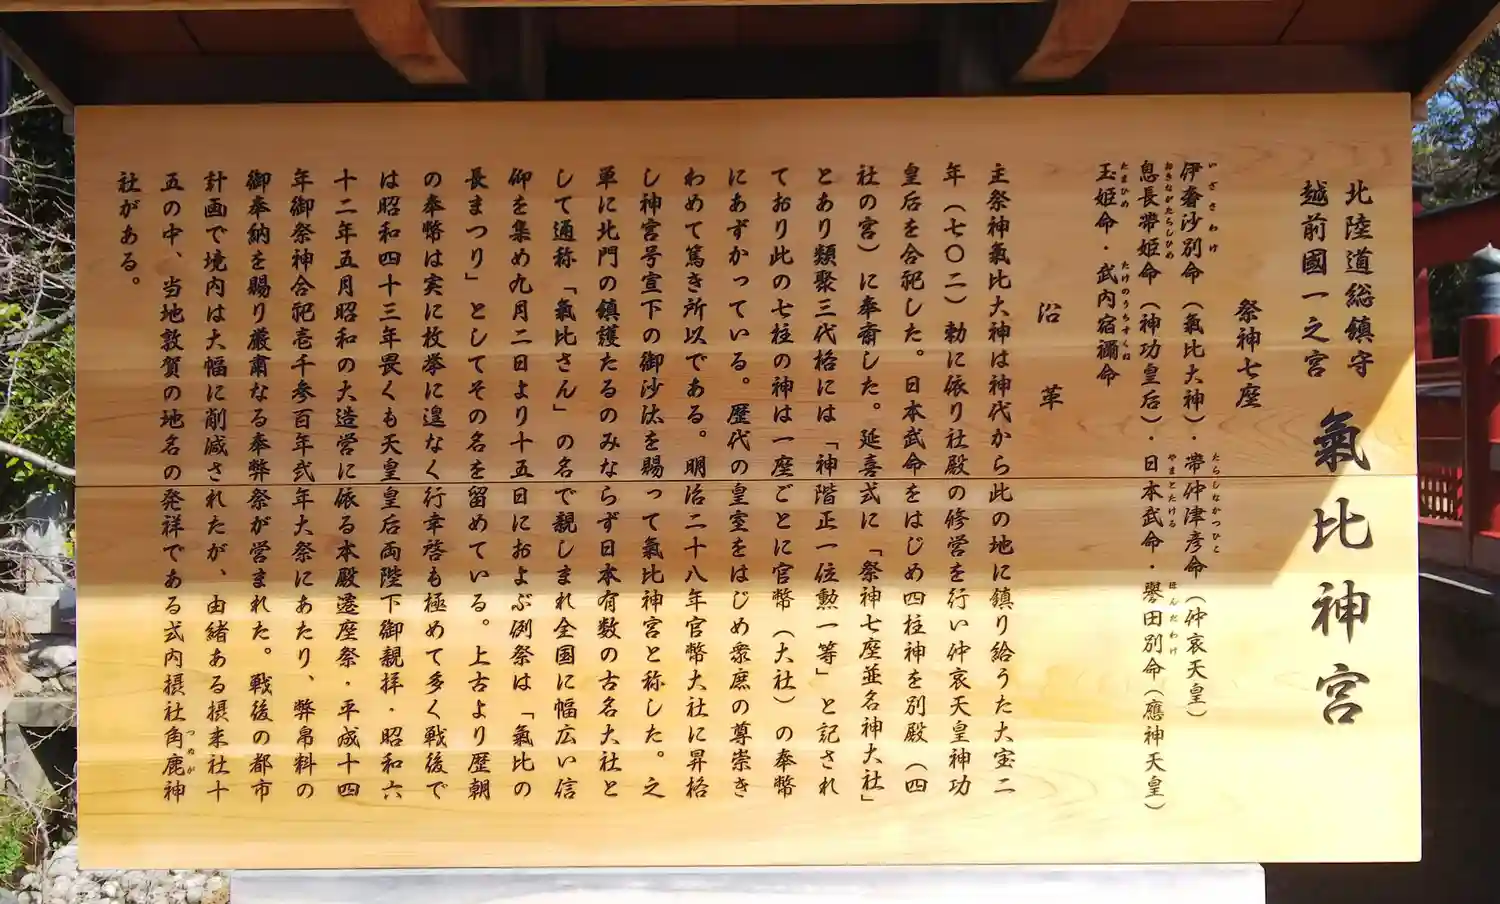 北陸道総鎮守
越前國一之宮
氣比神宮
祭神七座
伊奢沙別命（氣比大神）・帶仲津彦命（仲哀天皇）
いざさわけ
たらしなかつひこ
息長帶姫命（神功皇后）・日本武命・譽田別命（應神天皇）
おきながたらしひめ
やまとたける
ほんだわけ
玉姫命・武内宿禰命
たまひめ
たけのうちすくね
沿革
主祭神氣比大神は神代から此の地に鎮り給うた大宝二
年（七〇二）勅に依り社殿の修営を行い仲哀天皇神功
皇后を合祀した。日本武命をはじめ四柱神を別殿（四
社の宮）に奉斎した。延喜式に「祭神七座並名神大社」
とあり類聚三代格には「神階正一位勲一等」と記され
ており此の七柱の神は一座ごとに官幣（大社）の奉幣
にあずかっている。歴代の皇室をはじめ衆庶の尊崇き
わめて篤き所以である。明治二十八年官幣大社に昇格
し神宮号宣下の御沙汰を賜って氣比神宮と称した。之
単に北門の鎮護たるのみならず日本有数の古名大社と
して通称「氣比さん」の名で親しまれ全国に幅広い信
仰を集め九月二日より十五日におよぶ例祭は「氣比の
長まつり」としてその名を留めている。上古より歴朝
の奉幣は実に枚挙に遑なく行幸啓も極めて多く戦後で
は昭和四十三年畏くも天皇皇后両陛下御親拝・昭和六
十二年五月昭和の大造営に依る本殿遷座祭・平成十四
年御祭神合祀壱千参百年弐年大祭にあたり、幣帛料の
御奉納を賜り厳粛なる奉弊祭が営まれた。戦後の都市
計画で境内は大幅に削減されたが、由緒ある摂末社十
五の中、当地敦賀の地名の発祥である式内摂社角鹿神
つぬが
社がある。